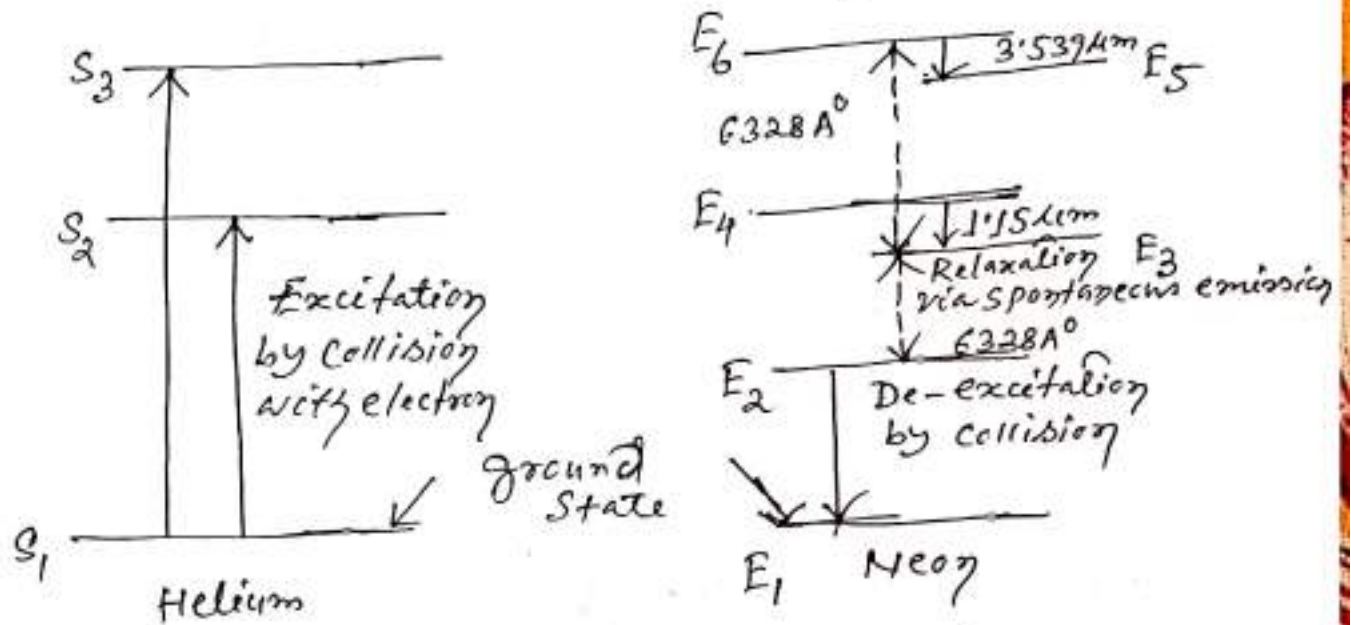 S3
S2
Excitation
by Collision
with electron
ground
State
S1
Helium
E6
3.539μm E5
6328A°
E4
1.15μm
Relaxation E3
via Spontaneous emission
6328A°
E2
De-excitation
by Collision
E1
Neon